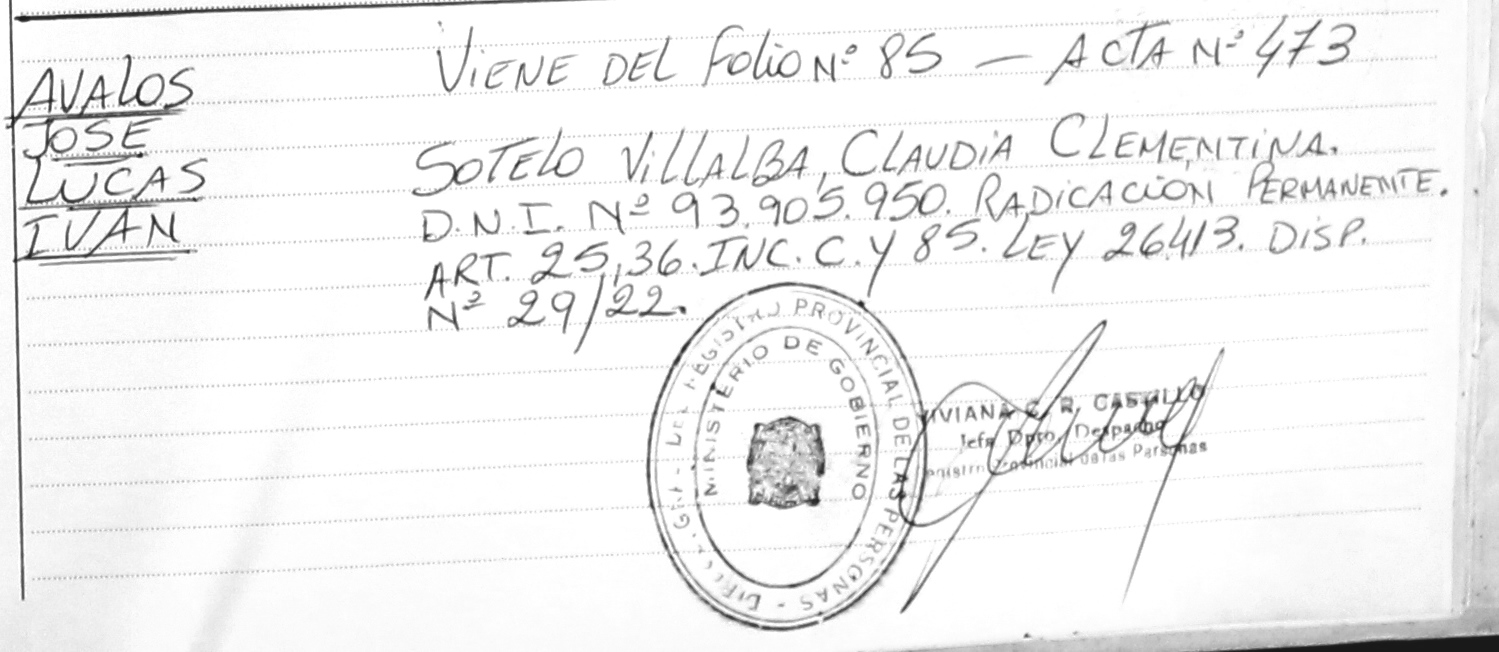 AVALOS
JOSE
LUCAS
IVAN
VIENE DEL FOLIO Nº 85 — ACTA Nº 473
SOTELO VILLALBA, CLAUDIA CLEMENTINA.
D.N.I. Nº 93.905.950. RADICACION PERMANENTE.
ART. 25,36. INC. C. Y 85. LEY 26.413. DISP.
Nº 29/22.
REGISTRO PROVINCIAL DE LAS PERSONAS
MINISTERIO DE GOBIERNO
VIVIANA C. R. CASTILLO
Jefa Dpto. Despacho
Provincial de las Personas